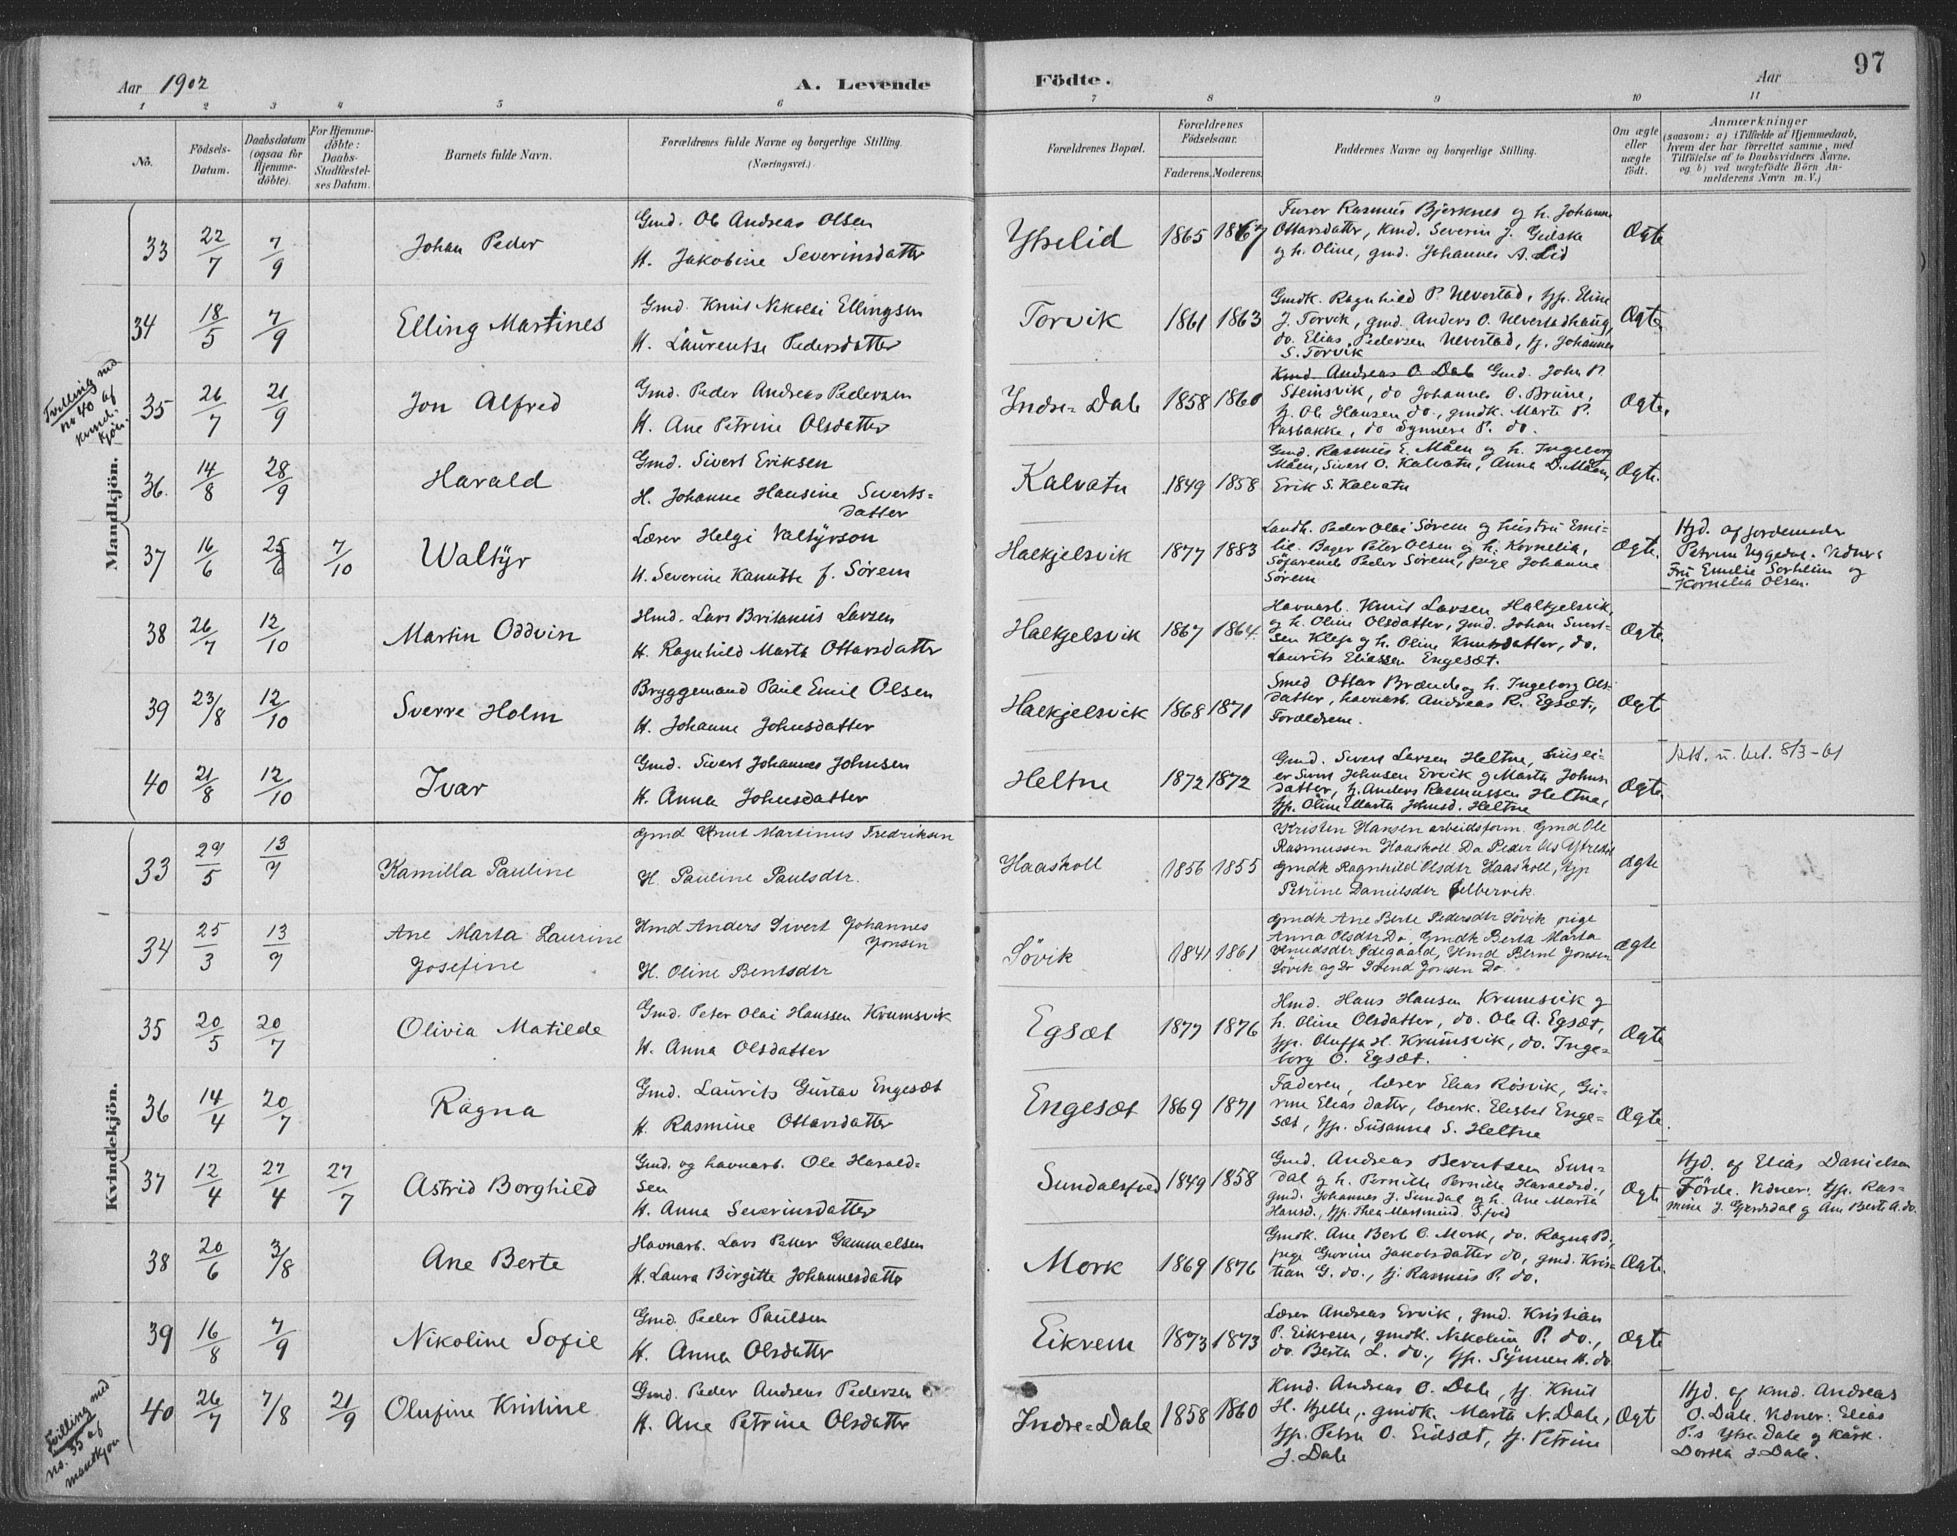 97
Aar 1902
A. Levende
Födte.
Aar
1 2 3 4 5 6 7 8 9 10 11
No.
Födsels-Datum.
Daabsdatum (ogsaa for Hjemme-döbte).
For Hjemme-döbte: Daabs-Stadfæstel-ses Datum.
Barnets fulde Navn.
Forældrenes fulde Navne og borgerlige Stilling.
(Næringsvei.)
Forældrenes Bopæl.
Forældrenes Födselsaar.
Faderens. Moderens.
Faddernes Navne og borgerlige Stilling.
Om ægte eller uægte födt.
Anmærkninger
(saasom: a) i Tilfælde af Hjemmedaab,
hvem der har forrettet samme, med
Tilföielse af to Daabsvidners Navne.
og b) ved uægtefödte Börn An-
melderens Navn m. V.)
Mandkjön.
33 22/7 7/9 Johan Peder
Gmd. Ole Andreas Olsen
H. Jakobine Severinsdatter
Ytrelid 1865 1867
Furer Rasmus Bjerknes og h. Johanne
Ottarsdatter, kmd. Severin J. Gidske
og h. Oline, gmd. Johannes A. Lid
Ægte
34 18/5 7/9 Elling Martines
Gmd. Knut Nikolai Ellingsen
H. Laurentse Pedersdatter
Torvik 1861 1863
Gmdk. Ragnhild P. Ulvestad, yp. Eline
J. Torvik, gmd. Anders O. Ulvestadhaug,
do. Elias Pedersen Ulvestad, y. Johannes
S. Torvik
Ægte
Tvilling med
no 40 af
kvind.
kjön.
35 26/7 21/9 Jon Alfred
Gmd. Peder Andreas Pedersen
H. Ane Petrine Olsdatter
Indre=Dale 1858 1860
Kmd. Andreas O. Dale Gmd. John P.
Steinsvik, do Johannes O. Brune,
y. Ole Hansen do., gmdk. Marte P.
Vasbakke, do Synneve P. do.
Ægte.
36. 14/8 28/9 Harald
Gmd. Sivert Eriksen
H. Johanne Hansine Siverts=
datter
Kalvatn 1849 1858
Gmd. Rasmus E. Måen og h. Ingeborg
Måen, Sivert O. Kalvatn, Anna D. Måen,
Erik S. Kalvatn
Ægte.
37 16/6 25/6 7/10 Waltýr
Lærer Helgi Valtýrson
H. Severine Kanutte f. Sørem
Halkjelsvik 1877 1883
Landh. Peder Olai Sørem og hustru Emi-
lie. Bager Peter Olsen og h. Kornelia,
Söfarende Peder Sørem, pige Johanne
Sørem
Ægte.
Hjd. af jordemoder
Petrine Uggedal. Vidner
Fru Emelie Sorheim og
Kornelia Olsen.
38 26/7 12/10 Martin Oddvin
Hmd. Lars Britanus Larsen
H. Ragnhild Marta Ottarsdatter
Halkjelsvik 1867 1864
Havnarb. Knut Larsen Halkjelsvik,
og h. Oline Olsdatter, gmd. Johan Sivert-
sen Klep og h. Oline Knutsdatter, do.
Laurits Eliassen Engesæt.
Ægte
39 23/8 12/10 Sverre Holm
Bryggemand Paul Emil Olsen
H. Johanne Johnsdatter
Halkjelsvik 1868 1871
Smed Ottar Brænde og h. Ingeborg Ols-
datter, havnarb. Andreas R. Egsæt.,
Forældrene.
Ægte
40 21/8 12/10 Ivar
Gmd. Sivert Johannes Johnsen
H. Anna Johnsdatter
Heltne 1872 1872
Gmd. Sivert Larsen Heltne, husei-
er Sivert Johnsen Ervik og Marta Johns-
datter, y. Anders Rasmussen Heltne,
yp. Oline Marta Johnsd. Heltne
Ægte.
Att. u. bet. 8/3-61
Kvindekjön.
33 29/5 13/7 Kamilla Pauline
Gmd Knut Martinus Fredriksen
H. Pauline Paulsdtr.
Haaskoll 1856 1855
Kristen Hansen arbeidsform. Gmd Ole
Rasmussen Haaskoll. Do Peder Ols Ytrelid
Gmdk Ragnhild Olsdtr Haaskoll, Yp
Petrine Danielsdtr
Ægte
34 25/3 13/7 Ane Marta Laurine
Josefine
Hmd Anders Sivert Johannes
Jonsen
H. Oline Bentsdtr
Søvik 1841 1861
Gmdk Ane Berte Pedersdtr Søvik pige
Anna Olsdtr Do. Gmdk Berta Marta
Knudsdtr Ødegaard, Hmd Bernt Jonsen
Søvik og Do Svend Jonsen Do
Ægte
35 20/5 20/7 Olivia Matilde
Gmd. Peter Olai Hanssen Krumsvik
H. Anna Olsdatter
Egsæt 1877 1876
Hmd. Hans Hansen Krumsvik og
h. Oline Olsdatter, do. Ole A. Egsæt,
yp. Oluffa H. Krumsvik, do. Inge=
borg O. Egsæt.
Ægte
36 14/4 20/7 Ragna
Gmd. Laurits Gustav Engesæt
H. Rasmine Ottarsdatter
Engesæt 1869 1871
Faderen, lærer Elias Røsvik, Gu-
rine Elias datter, lærerk. Elisbet Enge-
sæt, yp. Susanna S. Heltne
Ægte.
37 12/4 27/4 27/7 Astrid Borghild
Gmd. og havnarb. Ole Harald=
sen
H. Anna Severinsdatter
Sundalsfved 1849 1858
Gmd. Andreas Berntsen Sun-
dal og h. Pernille Pernille Haraldsd.,
gmd. Johannes J. Sundal og h. Ane Marta
Hansd., yp. Thea S.fved
Ægte
Hjd. af Elias Danielsen
Förde. Vidner: yp. Ras-
mine J. Gjerdsdal og Ane Berte A. do.
38 20/6 3/8 Ane Berte
Havnarb. Lars Petter Gammelsen
H. Laura Birgitte Johannesdatter
Mork 1869 1876
Gmdk. Ane Bert O. Mork, do. Ragna B.,
pige Gurine Jakobsdatter do, gmd. Kris-
tian G. do., y. Rasmus P. do.
Ægte.
39 16/8 7/9 Nikoline Sofie
Gmd. Peder Paulsen
H. Anna Olsdatter
Eikrem 1873 1873
Lærer Andreas Ervik, gmd. Kristian
P. Eikrem, gmdk. Nikoline P. do.,
do. Berta L. do., yp. Synnev H. do
Ægte
Tvilling med
no. 35 af
mandkjön
40 26/7 7/8 21/9 Olufine Kristine
Gmd. Peder Andreas Pedersen
H. Ane Petrine Olsdatter
Indre=Dale 1858 1860
Kmd. Andreas O. Dale, y. Knut
H. Hjelle, gmdk. Marta N. Dale,
yp. Petra O. Eidsæt, y. Petrine
J. Dale
Ægt
Hjd. af kmd. Andreas
O. Dale. Vidner: Elias
P.s Ytre Dale og kårk.
Dortea J. Dale.